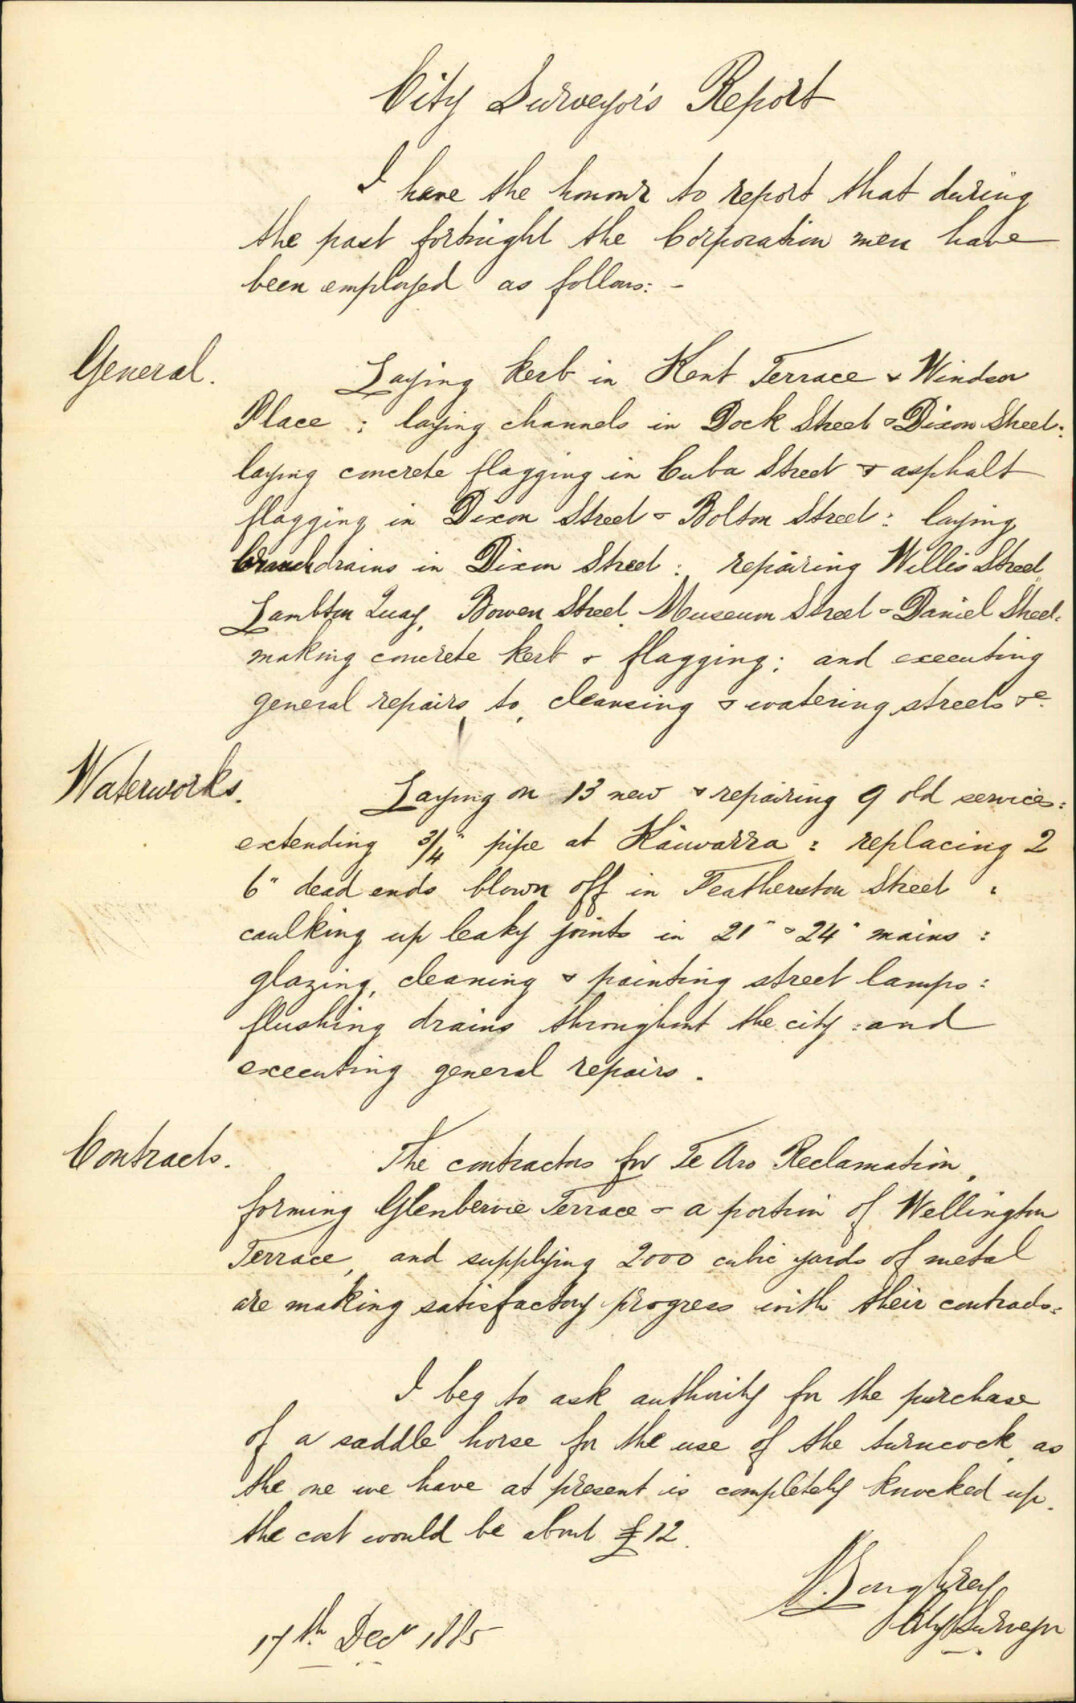 City Surveyor's Report
I have the honour to report that during
the past fortnight the Corporation men have
been employed as follows: -
General.
Laying kerb in Kent Terrace & Windsor
Place : laying channels in Dock Street & Dixon Street:
laying concrete flagging in Cuba Street & asphalt
flagging in Dixon Street & Bolton Street : laying
branch drains in Dixon Street : repairing Willis Street,
Lambton Quay, Bowen Street, Museum Street & Daniel Street:
making concrete kerb & flagging : and executing
general repairs to, cleansing & watering streets &c.
Waterworks.
Laying on 13 new & repairing 9 old services:
extending 3/4" pipe at Kaiwarra : replacing 2
6" dead ends blown off in Featherston Street :
caulking up leaky joints in 21" & 24" mains :
glazing, cleaning & painting street lamps:
flushing drains throughout the city : and
executing general repairs.
Contracts.
The contractors for Te Aro Reclamation,
forming Glenbervie Terrace & a portion of Wellington
Terrace, and supplying 2000 cubic yards of metal
are making satisfactory progress with their contracts.
I beg to ask authority for the purchase
of a saddle horse for the use of the turncock, as
the one we have at present is completely knocked up.
the cost would be about £12.
Loughrey
City Surveyor
17th Decr 1885